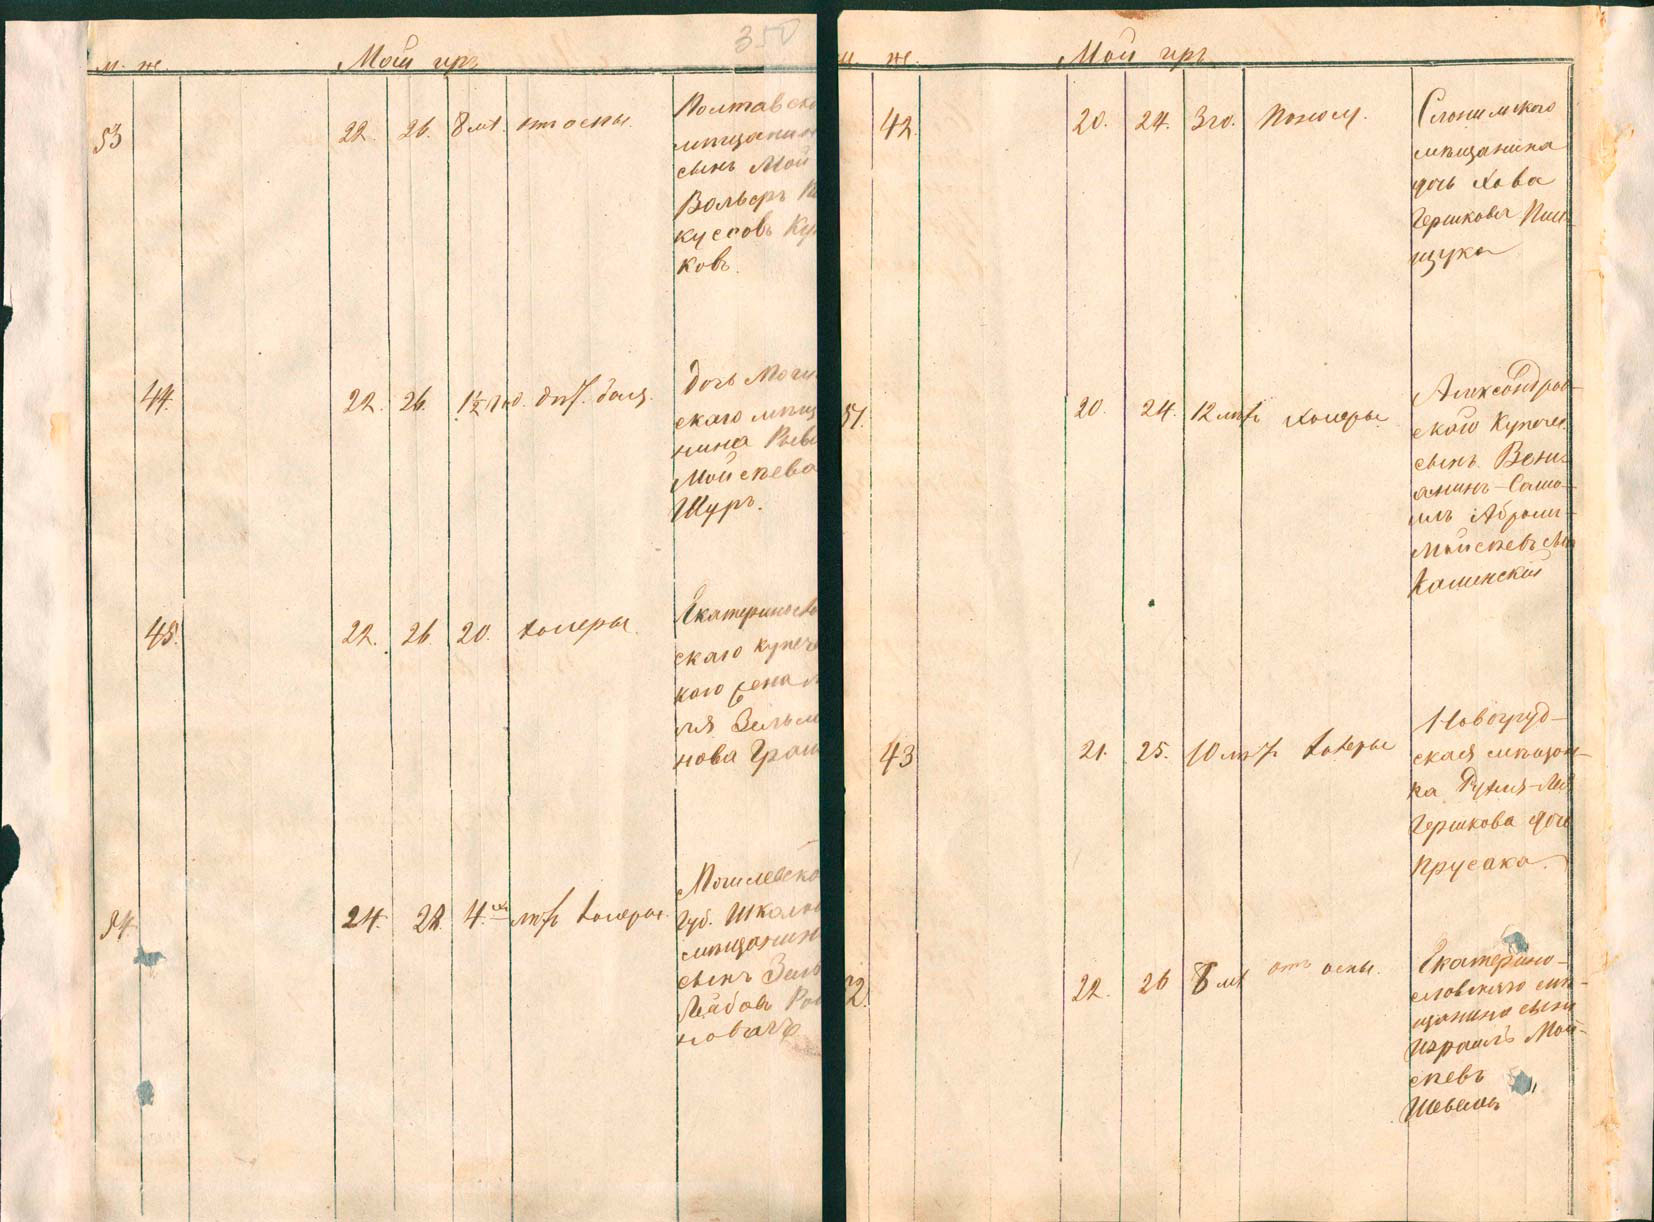 350
м. ж. Мой иръ
53 22. 26. 8 м. отъ оспы.
Полтавско
мѣщанин
сынъ Мой
Вольфъ
куссовъ Ку
ковъ.
44. 22. 26. 1½ год.
дочь Моги
скаго мѣщ
нина
Мойсеева
Шуръ.
45. 22. 26. 20. холеры.
Екатериносла
скаго купече
каго
Зельм
нова
54. 24. 28. 4. лѣтъ холеры.
Могилевско
Губ. Шклов
мѣщанин
сынъ Зель
Лейбовъ
новичъ
м. ж. Мой иръ
42. 20. 24. 3 го. понос.
Слонимского
мѣщанина
дочь Хава
Гершкова Пи
щука
51. 20. 24. 12 лѣтъ холеры.
Александров-
скаго купече
сынъ Вени-
аминъ-Само-
илъ Абрамъ-
Мойсеевъ
Каменскій
43 21. 25. 10 лѣтъ холеры
Новогруд-
ская мѣщан-
ка
Гершкова дочь
Прусака.
52. 22. 26 8 м. отъ оспы.
Екатерино-
славскаго мѣ-
щанина сынъ
Израиль Мой-
сеевъ
Шевель